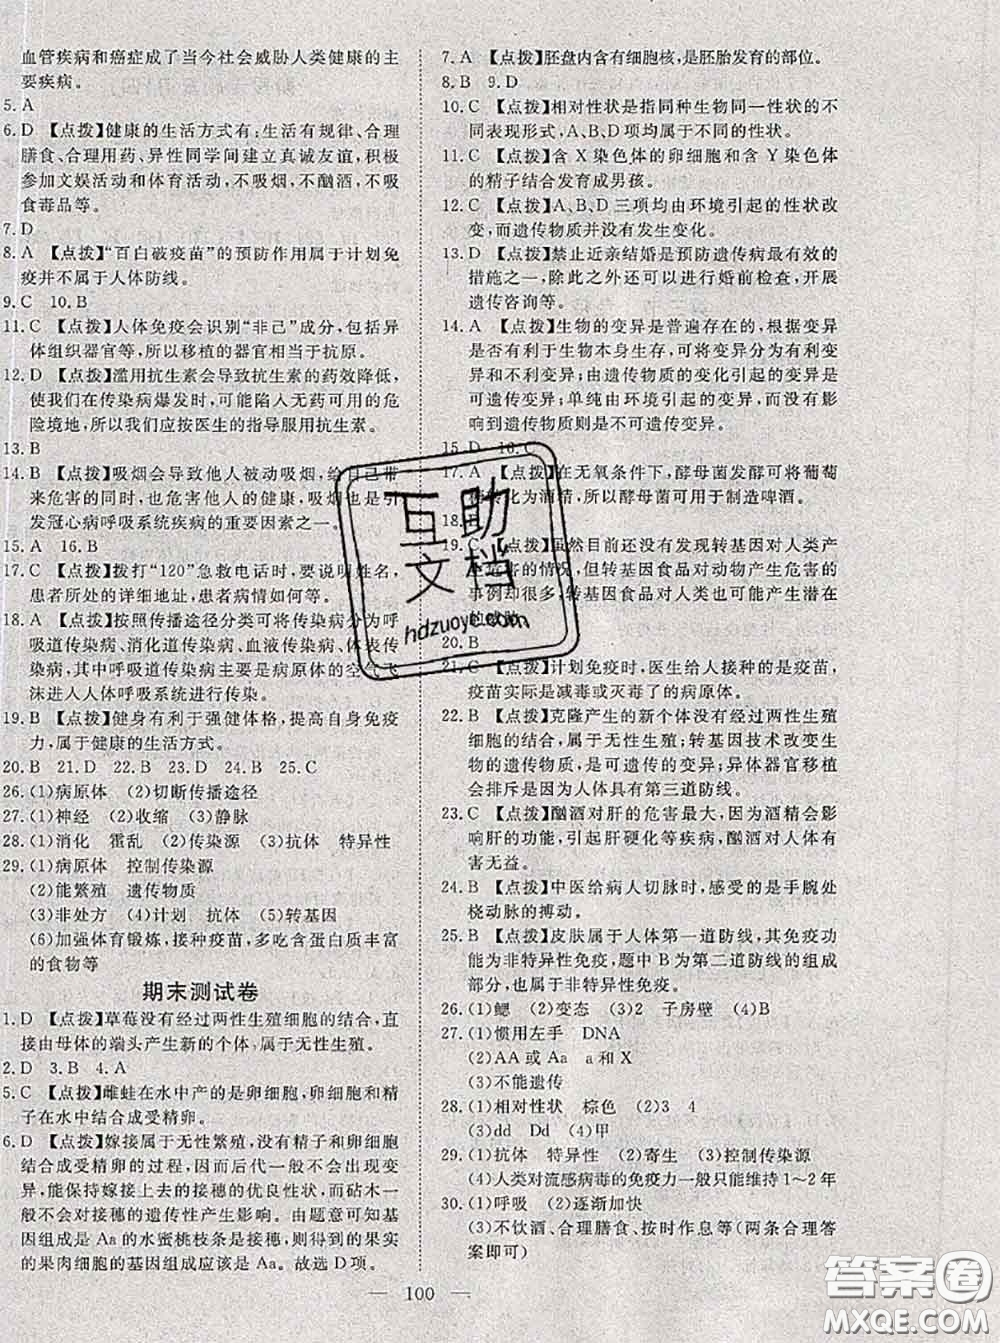 血管疾病和癌症成了当今社会威胁人类健康的主
要疾病。
5. A
6. D 【点拨】健康的生活方式有:生活有规律、合理
膳食、合理用药、异性同学间建立真诚友谊,积极
参加文娱活动和体育活动,不吸烟、不酗酒,不吸
食毒品等。
7. D
8. A 【点拨】“百白破疫苗”的预防作用属于计划免
疫并不属于人体防线。
9. C 10. B
11. C 【点拨】人体免疫会识别“非己”成分,包括异
体组织器官等,所以移植的器官相当于抗原。
12. D 【点拨】滥用抗生素会导致抗生素的药效降低,
使我们在传染病爆发时,可能陷入无药可用的危
险境地,所以我们应按医生的指导服用抗生素。
13. B
14. B 【点拨】吸烟会导致他人被动吸烟,给自己带
来危害的同时,也危害他人的健康,吸烟也是引
发冠心病呼吸系统疾病的重要因素之一。
15. A 16. B
17. C 【点拨】拨打“120”急救电话时,要说情姓名,
患者所处的详细地址,患者病情如何等。
18. A 【点拨】按照传播途径分类可将传染病分为呼
吸道传染病、消化道传染病、血液传染病、体表传
染病,其中呼吸道传染病主要是病原体的空气飞
沫进入人体呼吸系统进行传染。
19. B 【点拨】健身有利于强健体格,提高自身免疫
力,属于健康的生活方式。
20. B 21. D 22. D 23. C 24. B 25. C
26. (1)病原体 (2)切断传播途径
27. (1)神经 (2)收缩 (3)静脉
28. (1)消化 霍乱 (2)传染源 (3)抗体 特异性
29. (1)病原体 控制传染源
(2)能繁殖 遗传物质
(3)非处方 (4)计划 抗体 (5)转基因
(6)加强体育锻炼,接种疫苗,多吃含蛋白质丰富
的食物等
期末测试卷
1. D 【点拨】草莓没有经过两性生殖细胞的结合,直
接由母体的端头产生新的个体,属于无性生殖。
2. D 3. B 4. A
5. C 【点拨】雌蛙在水中产的是卵细胞,卵细胞和精
子在水中结合成受精卵。
6. D 【点拨】嫁接属于无性繁殖,没有精子和卵细胞
结合成受精卵的过程,因而后代一般不会出现变
异,能保持嫁接上去的接穗的优良性状,而砧木一
般不会对接穗的遗传性产生影响。由题意可知基
因组成是 Aa 的水蜜桃枝条是接穗,则得到的果实
的果肉细胞的基因组成应该是 Aa。故选 D 项。
7. A 【点拨】胚盘内含有细胞核,是胚胎发育的部位。
8. B 9. D
10. C 【点拨】相对性状是指同种生物同一性状的不
同表现形式,A、B、D 项均属于不同的性状。
11. C 【点拨】含 X 染色体的卵细胞和含 Y 染色体
的精子结合发育成男孩。
12. C 【点拨】A、B、D 三项均由环境引起的性状改
变,而遗传物质没有发生变化。
13. D 【点拨】禁止近亲结婚是预防遗传病最有效的
措施之一,除此之外还可以进行婚前检查,开展
遗传咨询等。
14. A 【点拨】生物的变异是普遍存在的,根据变异
是否有利于生物本身生存,可将变异分为有利变
异和不利变异;由遗传物质的变化引起的变异是
可遗传的变异,单纯由环境引起的变异,没有影
响到遗传物质则是不可遗传变异。
15. D 16. C
17. A 【点拨】在无氧条件下,酵母菌发酵可将葡萄
糖转化为酒精,所以酵母菌可用于制造啤酒。
18. B
19. C 【点拨】虽然目前还没有发现转基因对人类产
生危害的情况,但转基因食品对动物产生危害的
事例却很多,转基因食品对人类也可能产生潜在
的威胁。
20. B
21. C 【点拨】计划免疫时,医生给人接种的是疫苗,
疫苗实际是减毒或灭毒了的病原体。
22. B 【点拨】克隆产生的新个体没有经过两性生殖
细胞的结合,为无性生殖;转基因技术改变生物
的遗传物质,为可遗传的变异;异体器官移植会
排斥是因为人体具有第三道防线。
23. C 【点拨】酗酒对肝的危害最大,因为酒精会影
响肝的功能,引起肝硬化等疾病,酗酒对人体有
害无益。
24. B 【点拨】中医给病人切脉时,感受的是手腕处
桡动脉的搏动。
25. B 【点拨】皮肤属于人体第一道防线,其免疫功
能为非特异性免疫,题中 B 为第二道防线的组成
部分,也属于非特异性免疫。
26. (1)鳃 (2)变态 (3)2 子房壁 (4)B
27. (1)惯用左手 DNA
(2)AA 或 Aa a 和 X
(3)不能遗传
28. (1)相对性状 棕色 (2)3 4
(3)dd Dd (4)甲
29. (1)抗体 特异性 (2)寄生 (3)控制传染源
(4)人类对流感病毒的免疫力一般只能维持 1~2 年
30. (1)呼吸 (2)逐渐加快
(3)不饮酒、合理膳食、按时作息等(两条合理答
案即可)
— 100 —
互助
文档
hdzuoye.com
答案圈
MXQE.COM